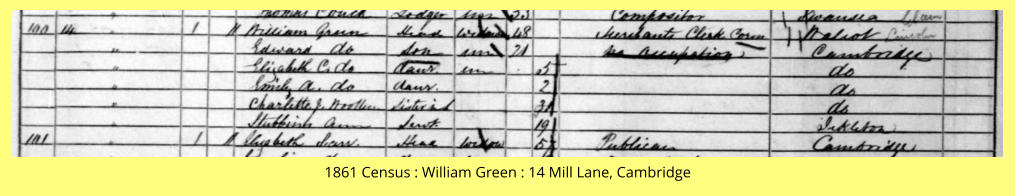 Thomas Lodger un 23 Compositor Swansea Glam
100 14 1 William Green Head Widr 48 Merchants Clerk Corn Walsot Lincoln
" Edward do Son un 21 no occupation Cambridge
" Elizabeth C. do daur un 5 do
" Emily A. do daur 2 do
" Charlotte J. Sister in L 31 do
" Stubbins Ann Servt 19 Ickleton
101 1 Elizabeth Head Widow 5 Publican Cambridge
1861 Census : William Green : 14 Mill Lane, Cambridge